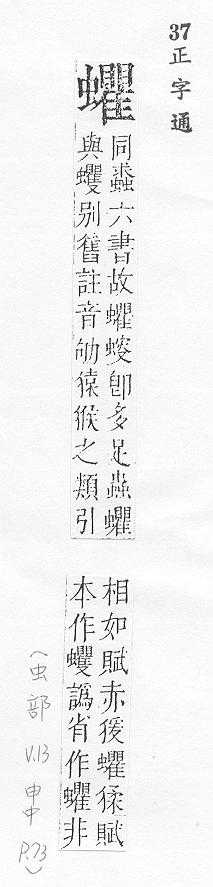 37正字通
蠷
同六書故蠷螋卽多足蟲蠷
與蠼別舊註音劬猿猴之類引
相如賦赤猨蠷猱賦
本作蠼譌省作蠷非
(虫部 V.13 申中 P.73)